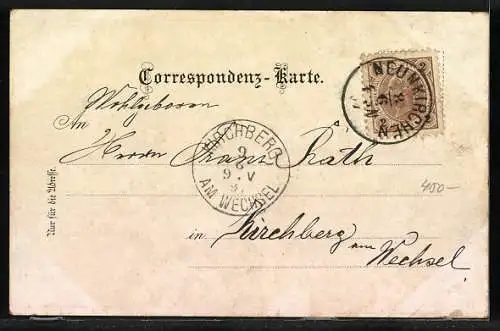 Correspondenz-Karte.
Wohlgeboren
An Herrn Franz Rath
in Kirchberg
am Wechsel
Nur für die Adresse.
NEUNKIRCHEN
KIRCHBERG
9
9. V
AM WECHSEL
400-